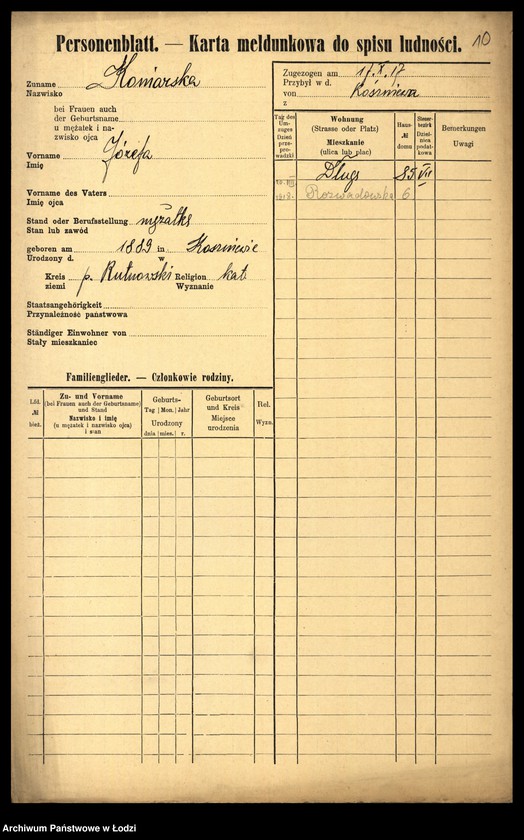 Personenblatt. — Karta meldunkowa do spisu ludności. 10
Zuname Koniarska
Nazwisko
bei Frauen auch
der Geburtsname
u mężatek i na-
zwisko ojca
Vorname Józefa
Imię
Vorname des Vaters
Imię ojca
Stand oder Berufsstellung mężatka
Stan lub zawód
geboren am 1889 in
Urodzony d. w
Kreis p. Kutnowski Religion kat
ziemi Wyznanie
Staatsangehörigkeit
Przynależność państwowa
Ständiger Einwohner von
Stały mieszkaniec
Zugezogen am 17.X.17
Przybył w d.
von
z
Tag des Um-zuges Dzień prze-pro-wadzki
Wohnung (Strasse oder Platz) Mieszkanie (ulica lub plac)
Haus-№ domu
Steuer-bezirk Dziel-nica podat-kowa
Bemerkungen Uwagi
Długa 85 VII
1918. Rozwadowska 6
Familienglieder. — Członkowie rodziny.
Lfd. № bież.
Zu- und Vorname (bei Frauen auch der Geburtsname) und Stand Nazwisko i imię (u mężatek i nazwisko ojca) i stan
Geburts- Tag Mon. Jahr Urodzony dnia mies. r.
Geburtsort und Kreis Miejsce urodzenia
Rel. Wyzn.
Archiwum Państwowe w Łodzi